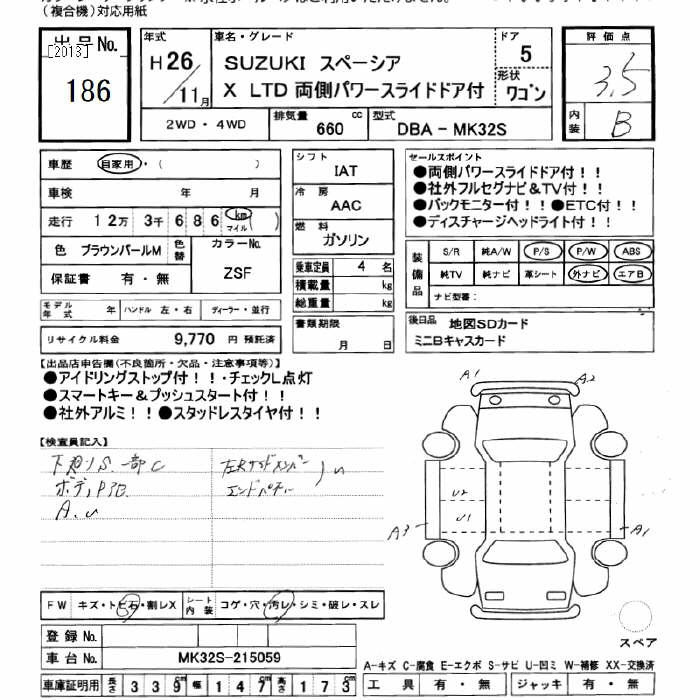 (複合機)対応用紙
出品No.
[2013]
186
年式
H26/11月
車名・グレード
SUZUKI スペーシア
X LTD 両側パワースライドドア付
ドア
5
形状
ワゴン
2WD・4WD
排気量 660 cc
型式 DBA-MK32S
評価点
3.5
内装 B
車歴 自家用・( )
車検 年 月
走行 12万 3千 686 km マイル ( )
色 ブラウンパールM 色替
カラーNo. ZSF
保証書 有・無
モデル年式 年 ハンドル 左・右 ディーラー・並行
リサイクル料金 9,770 円 預託済
シフト IAT
冷房 AAC
燃料 ガソリン
乗車定員 4 名
積載量 kg
総重量 kg
書類期限
月 日
セールスポイント
●両側パワースライドドア付!!
●社外フルセグナビ&TV付!!
●バックモニター付!!●ETC付!!
●ディスチャージヘッドライト付!!
装備品
S/R 純A/W P/S P/W ABS
純TV 純ナビ 革シート 外ナビ エアB
ナビ型番:
後日品 地図SDカード
ミニBキャスカード
【出品店申告欄(不良箇所・欠品・注意事項等)】
●アイドリングストップ付!!・チェックL点灯
●スマートキー&プッシュスタート付!!
●社外アルミ!!●スタッドレスタイヤ付!!
【検査員記入】
A.U
A1
A2
U2
U1
A3
A1
スペア
FW キズ・トビ石・割レX
シート内装 コゲ・穴・汚レ・シミ・破レ・スレ
登録No.
車台No. MK32S-215059
車庫証明用 長さ 339 cm 幅 147 cm 高さ 173 cm
A-キズ C-腐食 E-エクボ S-サビ U-凹ミ W-補修 XX-交換済
工具 有・無 ジャッキ 有・無